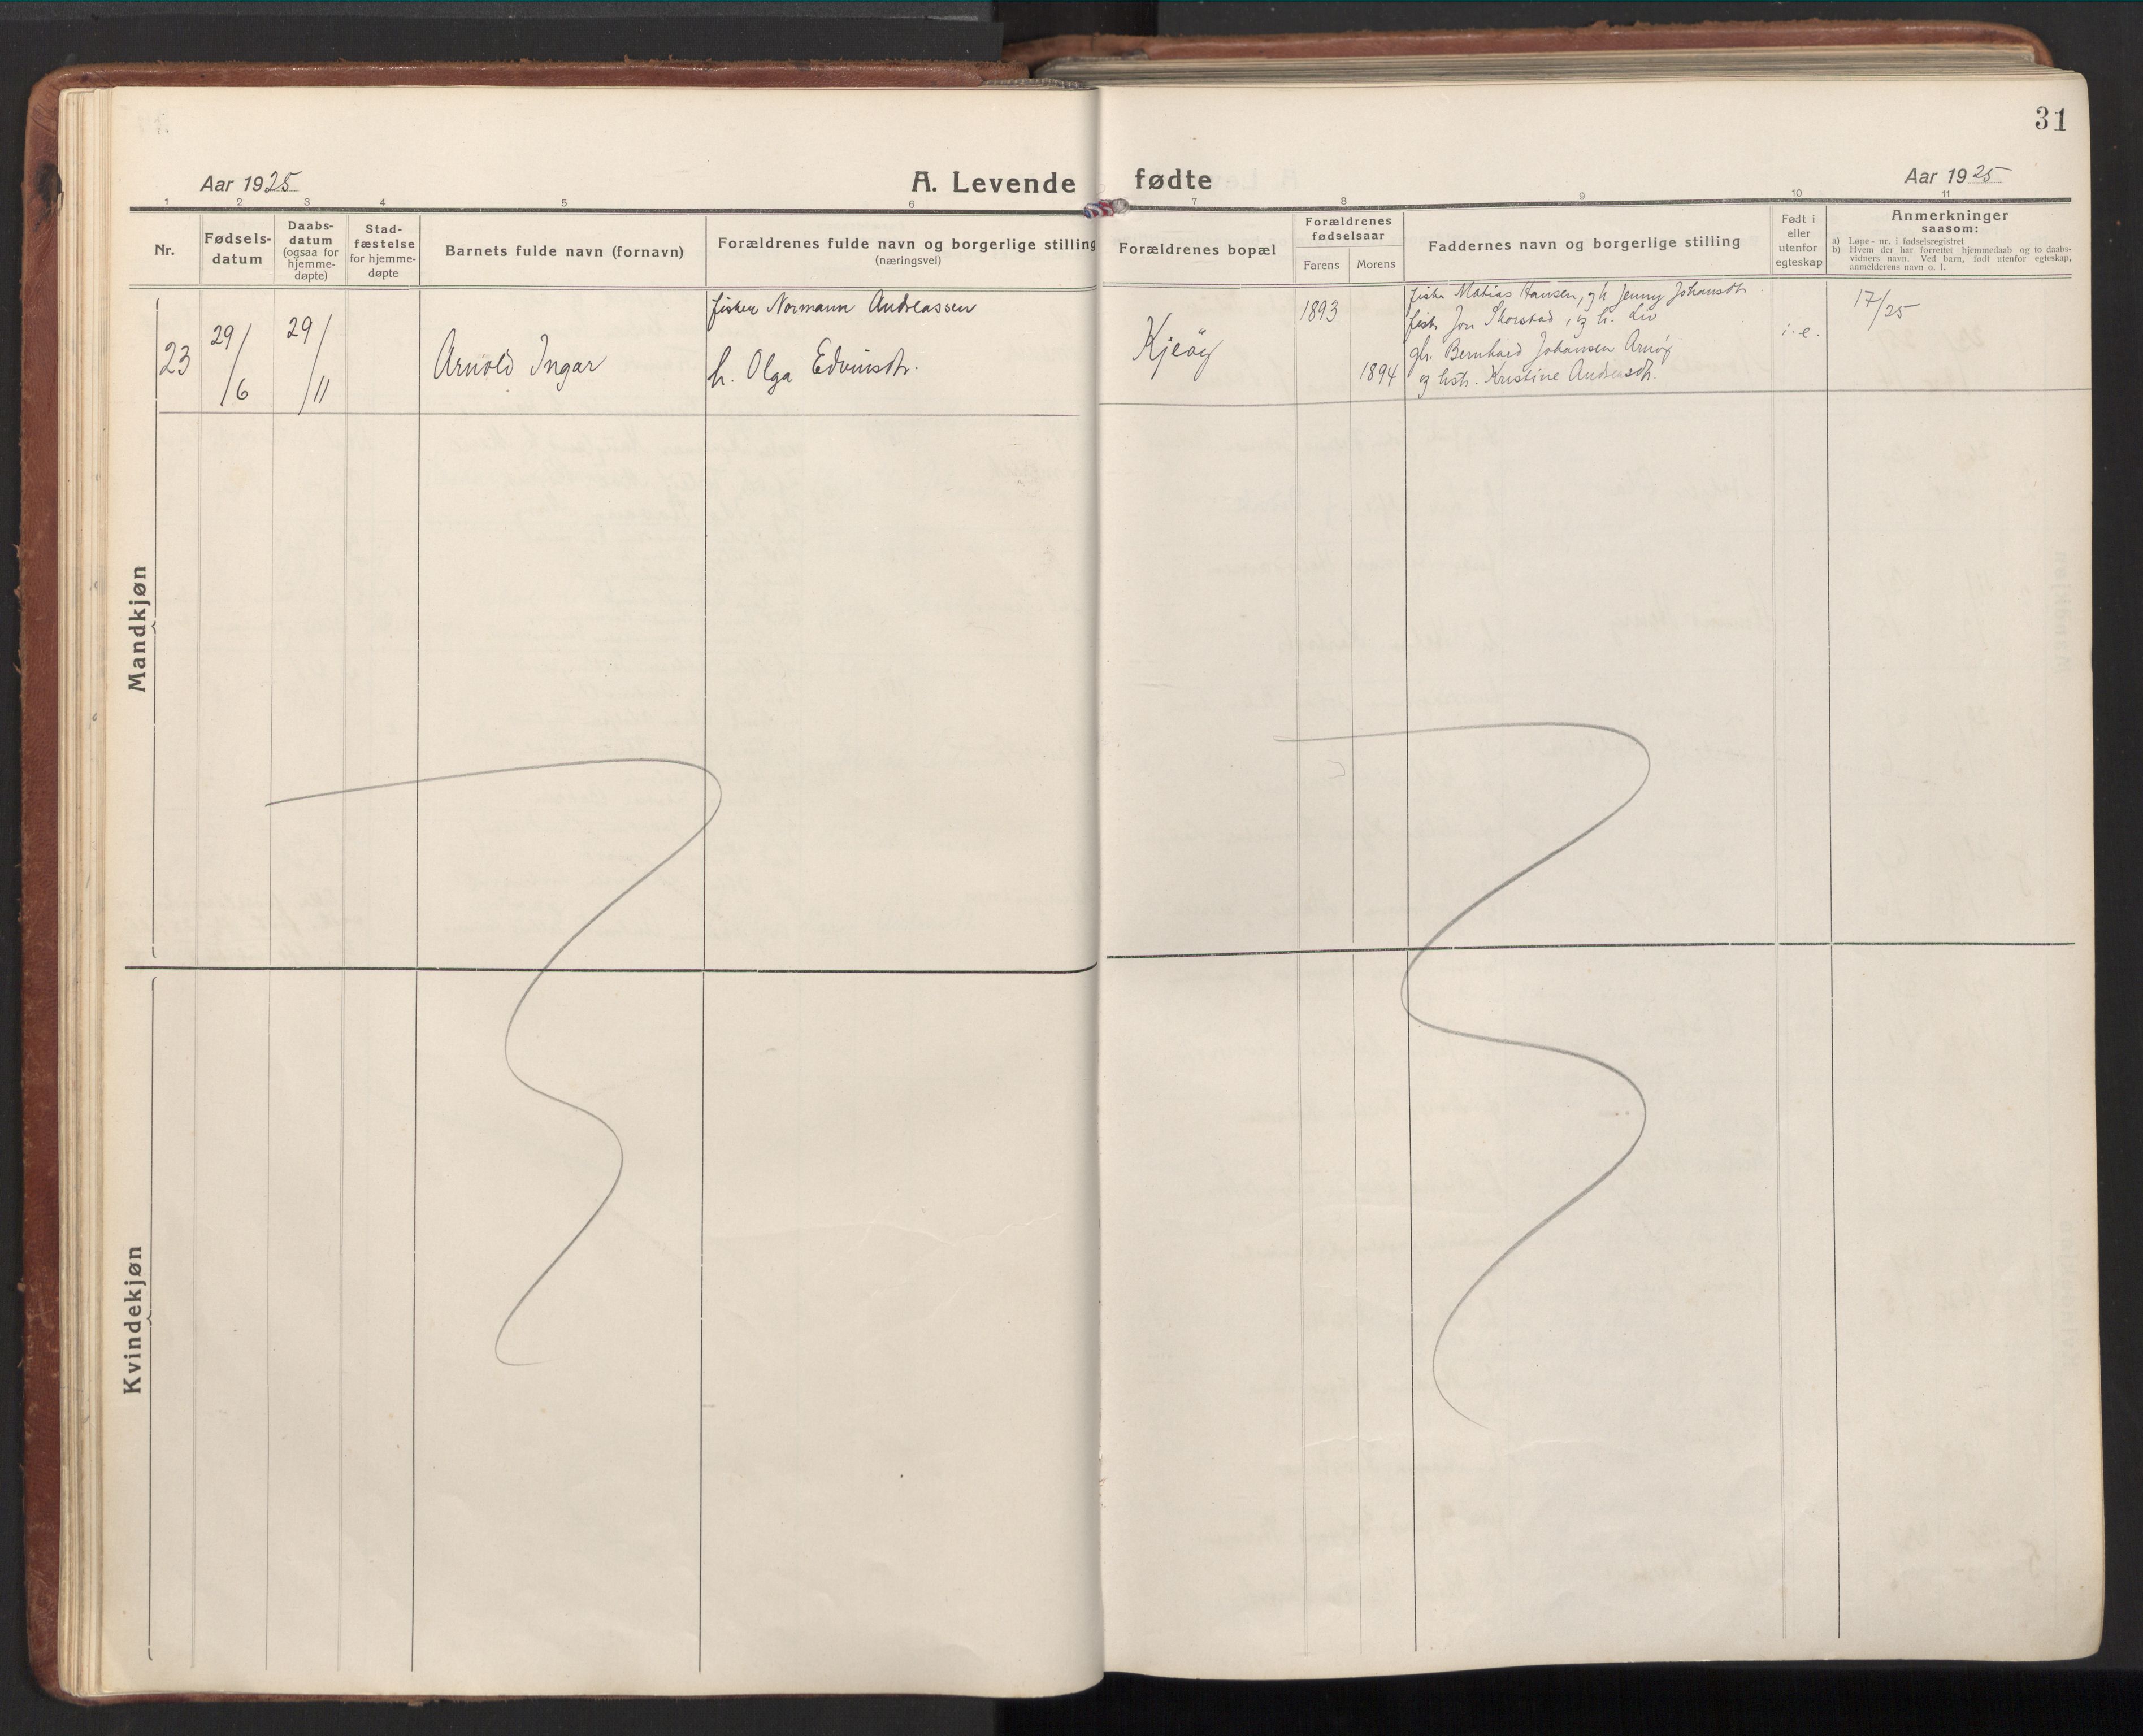 31
Aar 1925
A. Levende fødte
Aar 1925
1 2 3 4 5 6 7 8 9 10 11
Nr.
Fødsels-
datum
Daabs-
datum
(ogsaa for
hjemme-
døpte)
Stad-
fæstelse
for hjemme-
døpte
Barnets fulde navn (fornavn)
Forældrenes fulde navn og borgerlige stilling
(næringsvei)
Forældrenes bopæl
Forældrenes
fødselsaar
Farens Morens
Faddernes navn og borgerlige stilling
Født i
eller
utenfor
egteskap
Anmerkninger
saasom:
a) Løpe-nr. i fødselsregistret
b) Hvem der har forrettet hjemmedaab og to daabs-
vidners navn. Ved barn, født utenfor egteskap,
anmelderens navn o. l.
Mandkjøn
23
29/6
29/11
Arnold Ingar
fisker Normann Andreassen
h. Olga Edvinsdtr.
Kjeöy
1893
1894
fisk. Matias Hansen, gh Jenny Johansdtr
fisk. Jon Skorstad, og h. Liv
gh. Bernhard Johansen Arnöy
og hstr. Kristine Andreasdtr.
i. e.
17/25
Kvindekjøn